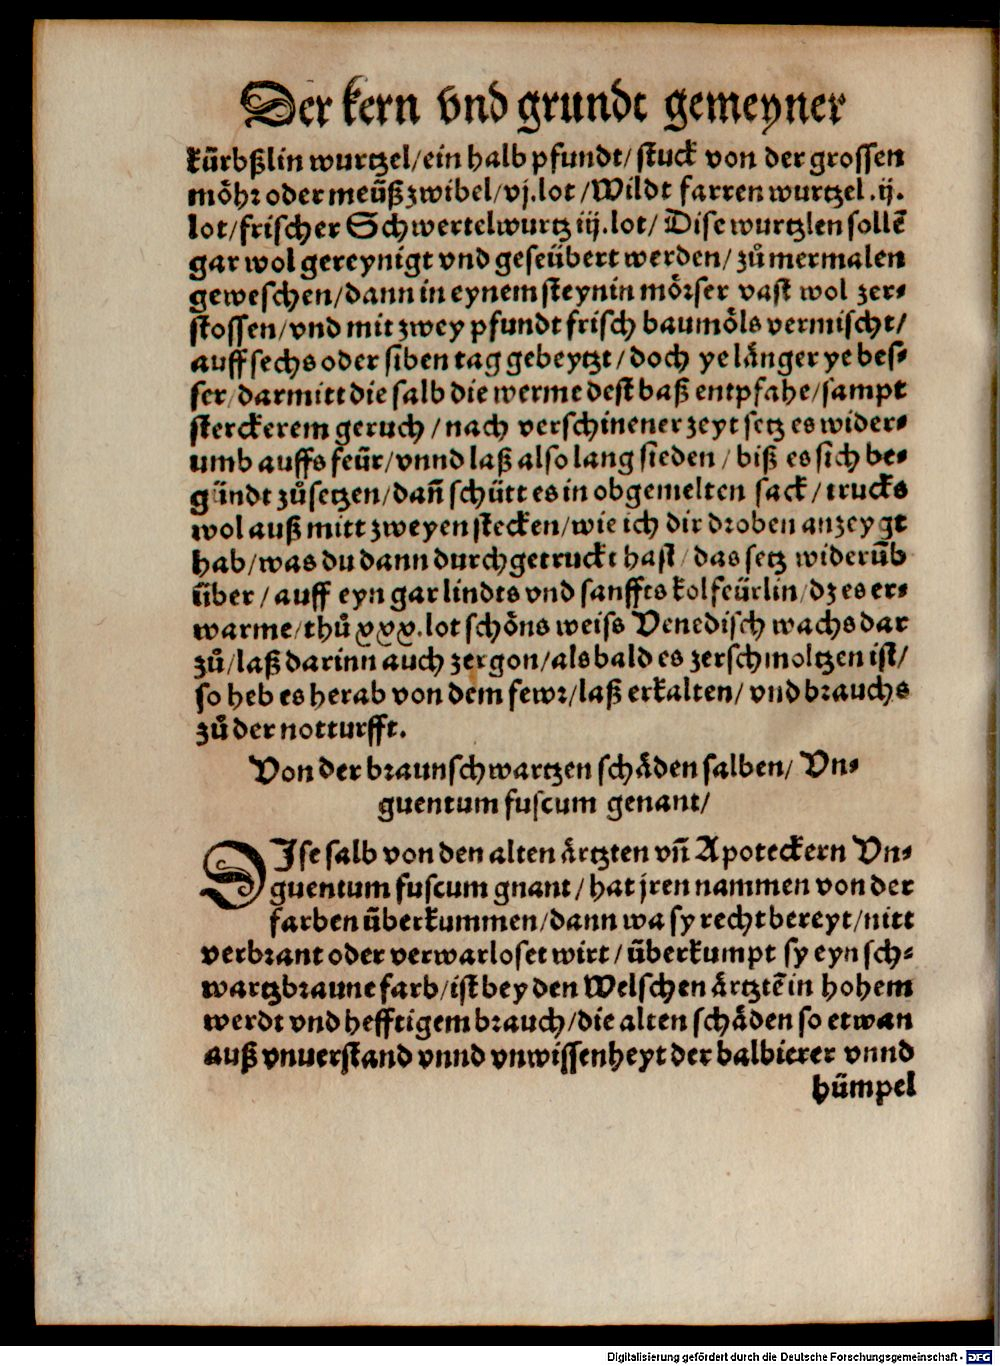 Der kern vnd grundt gemeyner
kürbßlin wurtzel/ein halb pfundt/stuck von der grossen
möhr oder meüßzwibel/vj.lot/Wildt farren wurtzel.ij.
lot/frischer Schwertelwurtz iij.lot/Dise wurtzlen sollē
gar wol gereynigt vnd geseübert werden/zůmermalen
geweschen/dann in eynem steynin mörser vast wol zer⸗
stossen/vnd mit zwey pfundt frisch baumöls vermischt/
auff sechs oder siben tag gebeytzt/doch ye länger ye bes⸗
ser/darmitt die salb die werme dest baß entpfahe/sampt
sterckerem geruch/nach verschinener zeyt setz es wider⸗
umb auffs feür/vnnd laß also lang sieden/biß es sich be⸗
gündt zůsetzen/dañ schütt es in obgemelten sack/trucks
wol auß mitt zweyen stecken/wie ich dir droben anzeygt
hab/was du dann durchgetruckt hast/das setz widerūb
über/auff eyn gar lindts vnd sanffts kolfeürlin/dz es er⸗
warme/thů xxx.lot schöns weiss Venedisch wachs dar
zů/laß darinn auch zergon/als bald es zerschmoltzen ist/
so heb es herab von dem fewr/laß erkalten/vnd brauchs
zů der notturfft.
Von der braunschwartzen schäden salben/Vn⸗
guentum fuscum genant/
DIse salb von den alten ärtzten vñ Apoteckern Vn⸗
guentum fuscum gnant/hat jren nammen von der
farben überkummen/dann wa sy recht bereyt/nitt
verbrant oder verwarloset wirt/überkumpt sy eyn sch⸗
wartzbraune farb/ist bey den Welschen ärtztē in hohem
werdt vnd hefftigem brauch/die alten schäden so etwan
auß vnuerstand vnnd vnwissenheyt der balbierer vnnd
hümpel
Digitalisierung gefördert durch die Deutsche Forschungsgemeinschaft - DFG